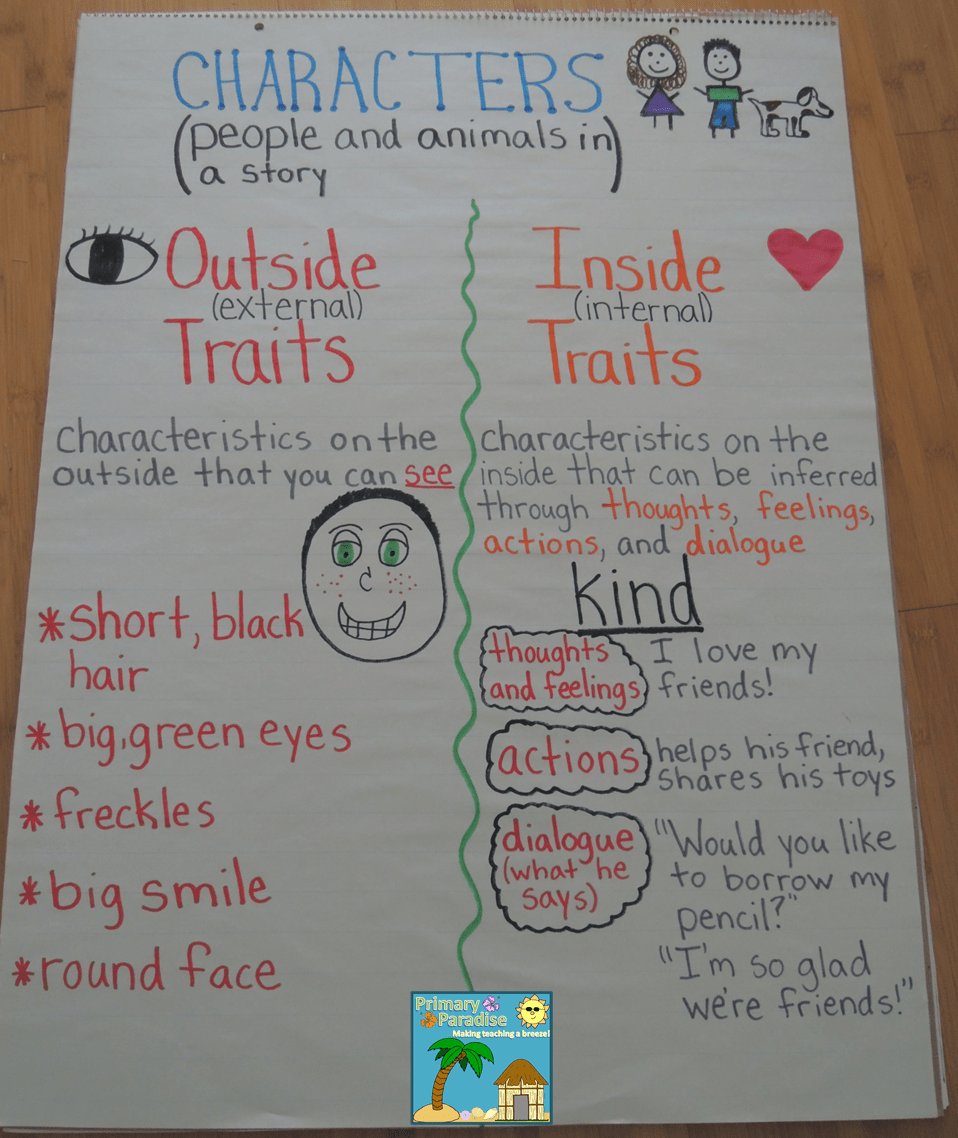 CHARACTERS
(people and animals in
a story)
Outside
(external)
Traits
characteristics on the
outside that you can see
*short, black
hair
*big, green eyes
*freckles
*big smile
*round face
Inside
(internal)
Traits
characteristics on the
inside that can be inferred
through thoughts, feelings,
actions, and dialogue
kind
thoughts
and feelings
I love my
friends!
actions
helps his friend,
shares his toys
dialogue
(what he
says)
"Would you like
to borrow my
pencil?"
"I'm so glad
we're friends!"
Primary
Paradise
Making teaching a breeze!